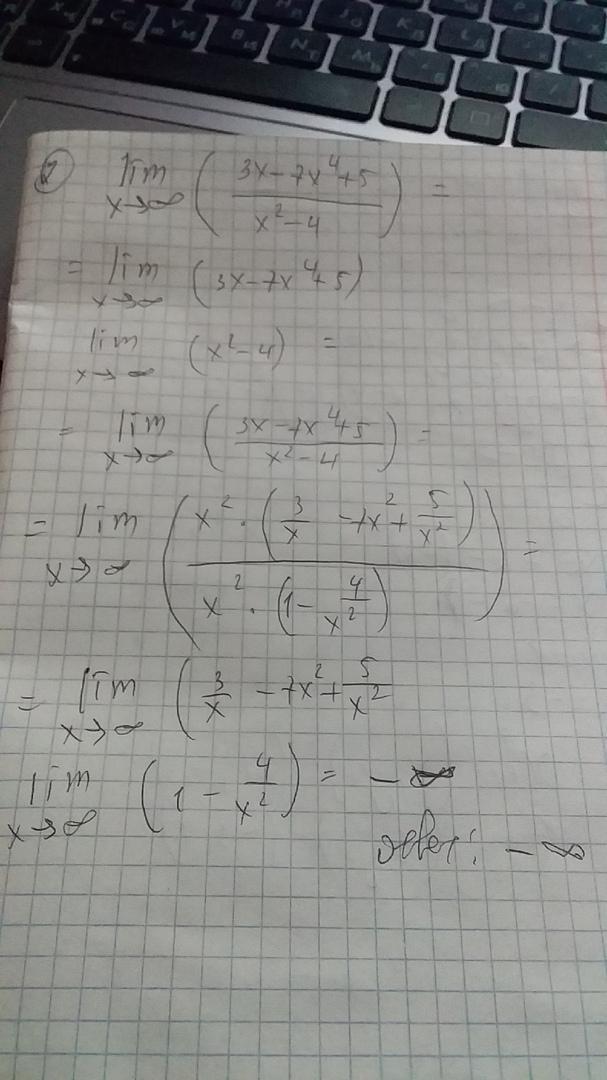 ② lim x→∞ ( (3x-7x⁴+5) / (x²-4) ) =
= lim x→∞ (3x-7x⁴+5)
lim x→∞ (x²-4) =
= lim x→∞ ( (3x-7x⁴+5) / (x²-4) ) =
= lim x→∞ ( x² · (3/x -7x²+ 5/x²) / x² · (1- 4/x²) ) =
= lim x→∞ ( 3/x -7x²+ 5/x²
lim x→∞ (1 - 4/x²) = -∞
ответ: -∞